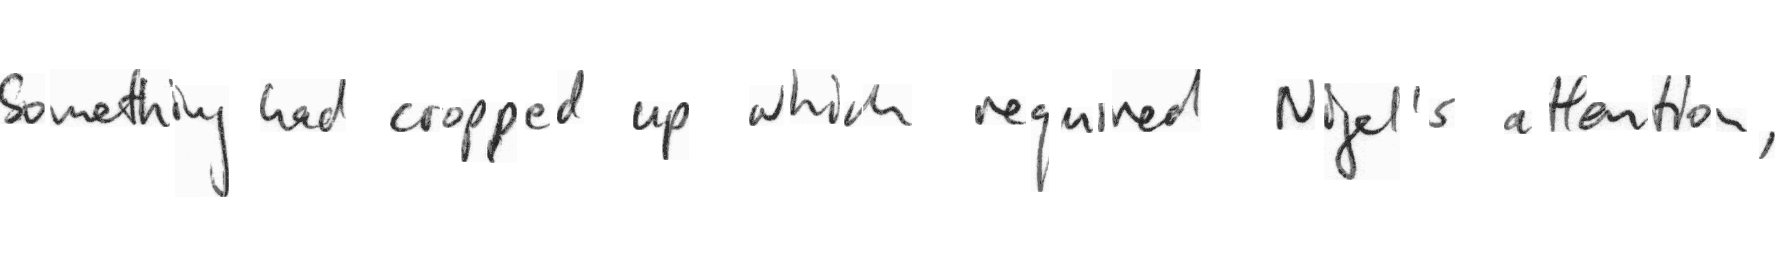 Something had cropped up which required Nigel's attention,